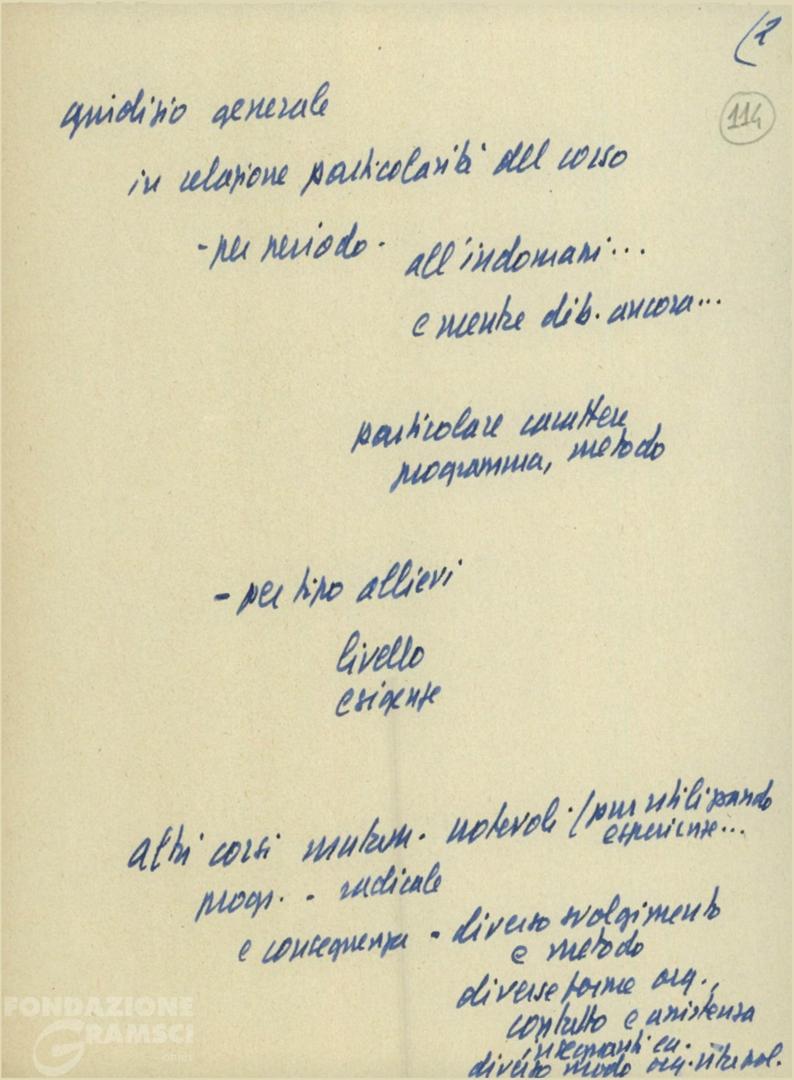 (2
114
giudizio generale
in relazione particolarità del corso
- per periodo - all'indomani...
e mentre dib. ancora...
particolare carattere
programma, metodo
- per tipo allievi
livello
esigenze
altri corsi mutam. notevoli (pur utilizzando
esperienze...
progr. - radicale
e conseguenza - diverso svolgimento
e metodo
diverse forme org.,
contatto e assistenza
insegnanti ecc.
diverso modo org.
FONDAZIONE
GRAMSCI